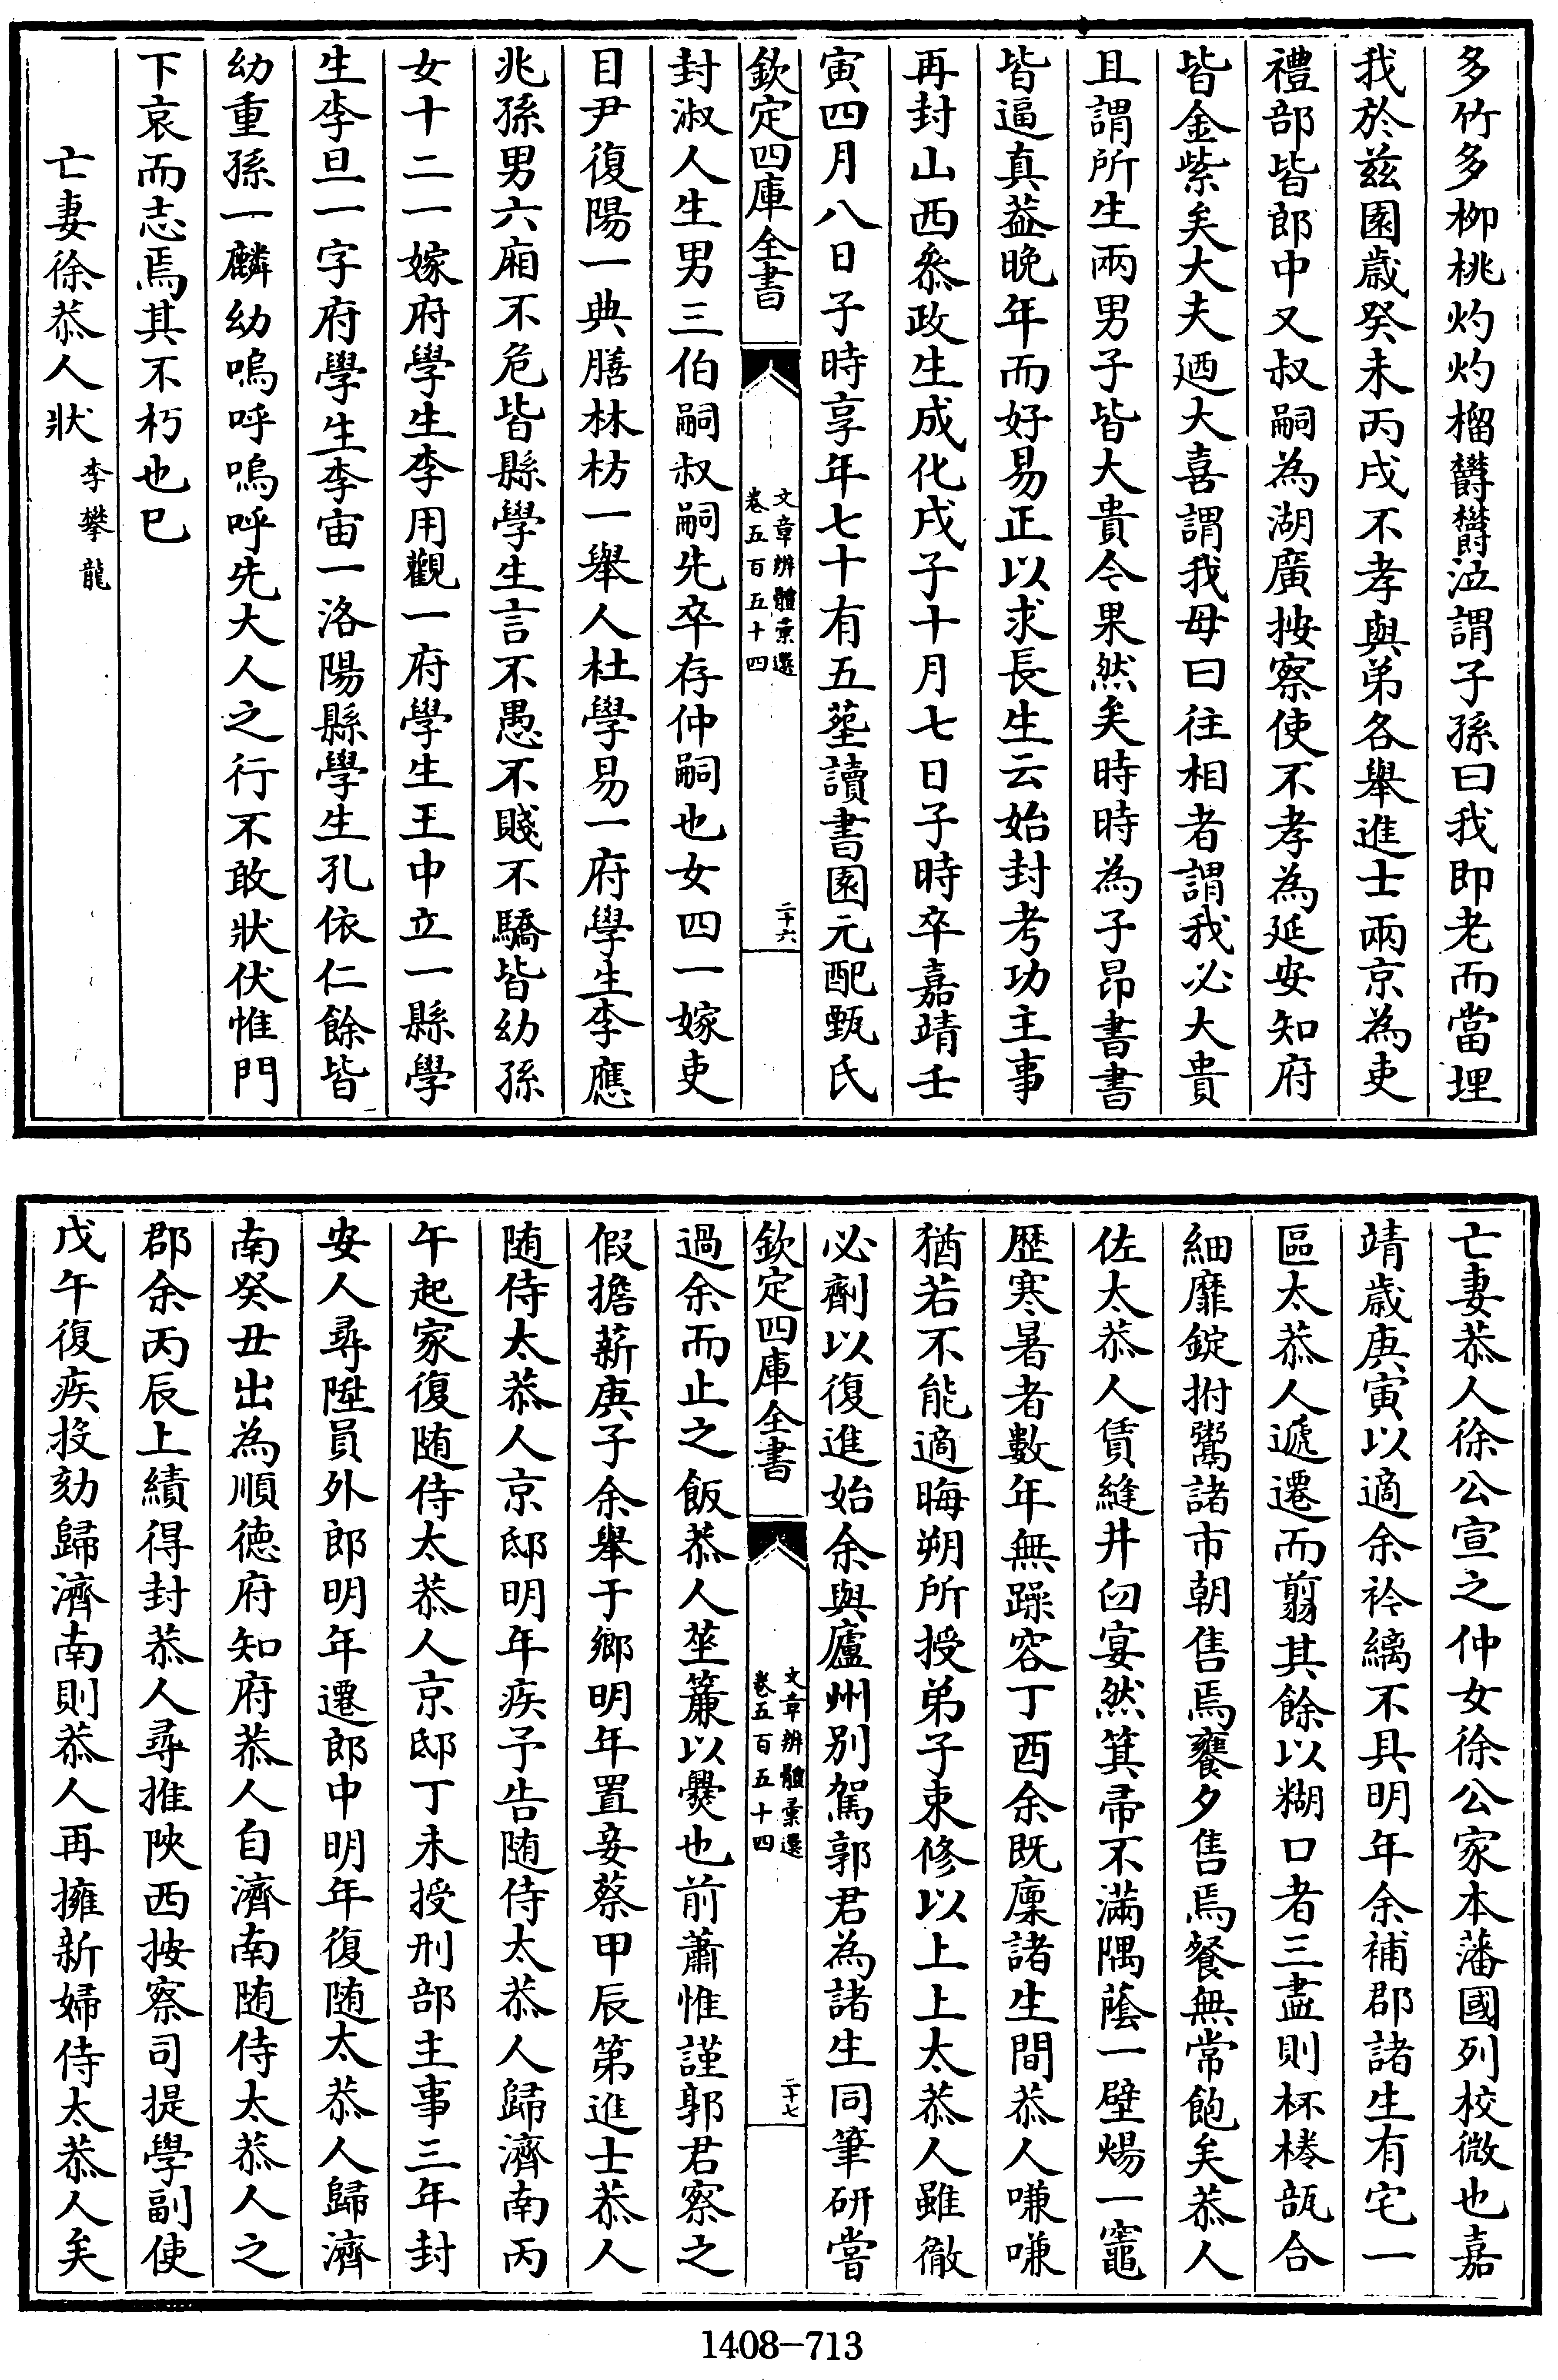 多竹多柳桃灼灼榴欝欝泣謂子孫曰我即老而當埋
我於兹園歳癸未丙戌不孝與弟各舉進士兩京為吏
禮部皆郎中又叔嗣為湖廣按察使不孝為延安知府
皆金紫矣大夫廼大喜謂我母曰往相者謂我必大貴
且謂所生兩男子皆大貴今果然矣時時為子昂書書
皆逼真葢晩年而好易正以求長生云始封考功主事
再封山西叅政生成化戌子十月七日子時卒嘉靖壬
寅四月八日子時享年七十有五塟讀書園元配甄氏
欽定四庫全書
文章辨體彙選
卷五百五十四
二十六
封淑人生男三伯嗣叔嗣先卒存仲嗣也女四一嫁吏
目尹復陽一典膳林枋一舉人杜學易一府學生李應
兆孫男六廂不危皆縣學生言不愚不賤不驕皆幼孫
女十二一嫁府學生李用觀一府學生王中立一縣學
生李旦一字府學生李宙一洛陽縣學生孔依仁餘皆
幼重孫一麟幼嗚呼嗚呼先大人之行不敢狀伏惟門
下哀而志焉其不朽也已
亡妻徐恭人狀 李攀龍
亡妻恭人徐公宣之仲女徐公家本藩國列校微也嘉
靖歳庚寅以適余衿縭不具明年余補郡諸生有宅一
區太恭人遞遷而翦其餘以糊口者三盡則杯棬瓿合
細靡錠拊鬻諸市朝售焉饔夕售焉餐無常飽矣恭人
佐太恭人賃縫井臼宴然箕帚不滿隅蔭一壁煬一竈
歴寒暑者數年無躁容丁酉余既廩諸生間恭人嗛嗛
猶若不能適晦朔所授弟子束修以上上太恭人雖徹
必劑以復進始余與廬州别駕郭君為諸生同筆研嘗
欽定四庫全書
文章辨體彙選
卷五百五十四
二十七
過余而止之飯恭人莝簾以爨也前蕭惟謹郭君察之
假擔薪庚子余舉于鄉明年置妾蔡甲辰第進士恭人
随侍太恭人京邸明年疾予告随侍太恭人歸濟南丙
午起家復随侍太恭人京邸丁未授刑部主事三年封
安人尋陞員外郎明年遷郎中明年復随太恭人歸濟
南癸丑出為順德府知府恭人自濟南随侍太恭人之
郡余丙辰上績得封恭人尋推陜西按察司提學副使
戊午復疾投劾歸濟南則恭人再擁新婦侍太恭人矣
1408-713